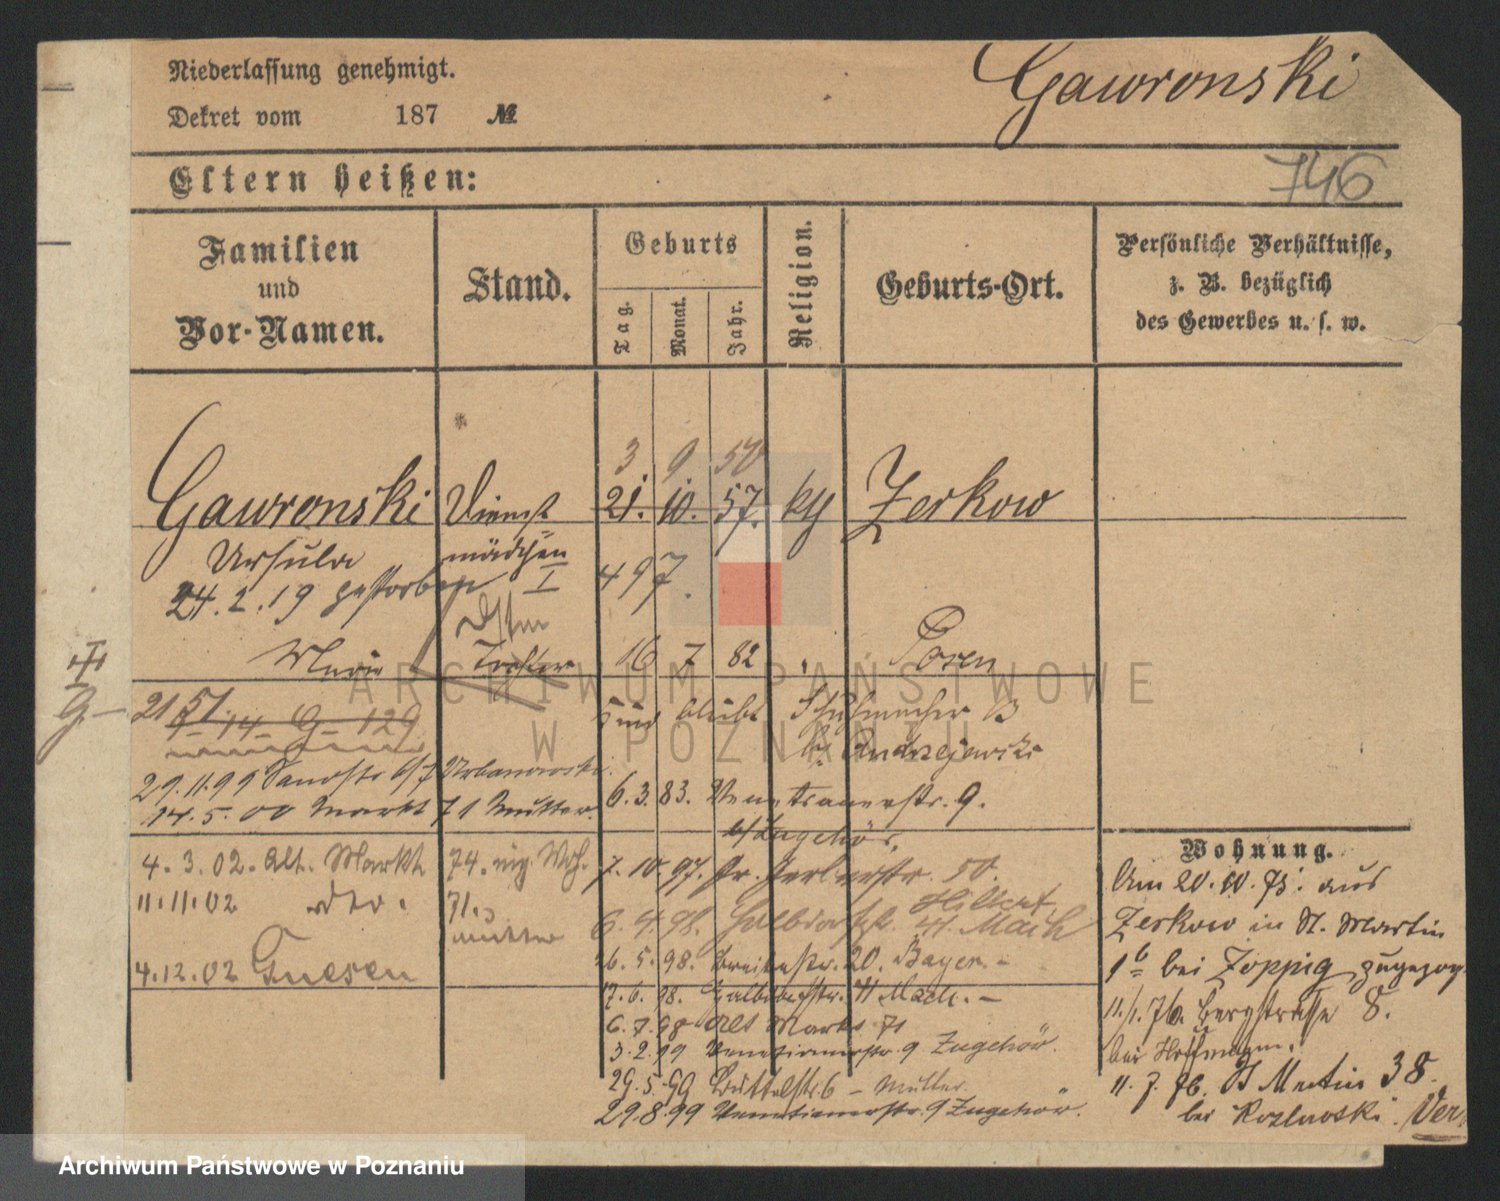 Niederlassung genehmigt.
Dekret vom 187 №
Gawronski
746
Eltern heißen:
Familien und Vor-Namen.
Stand.
Geburts
Tag.
Monat.
Jahr.
Religion.
Geburts-Ort.
Persönliche Verhältnisse,
z. B. bezüglich
des Gewerbes u. s. w.
3 9 50
Gawronski Dienst 21. 10. 57. kth Zerkow
Ursula mädchen
24.2.19 gestorben I 4 97.
Marie Tochter 16 7 82 Posen
G 21 51.
14 G 129
Schuhmacher B
Andrzejewski
29.11.99 6/7 Urbanowski
14.5.00 Markt 71 Mutter
6.3.83. Venetianerstr. 9.
b/Zugehör.
Wohnung.
4.3.02. Alt. Markt 74.
7.10.97. Gr. Gerberstr. 50.
Am 20.10.75. aus
11.11.02 dto. 71.
Mutter
Hilbert
6.4.98. Halbdorfstr. 41. Mach
Zerkow in St. Martin
4.12.02 Gnesen
16.5.98. Breitestr. 20. Bayer. -
bei Zoppig zugezog
17.6.98. Halbdorfstr. 41 Mach. -
11/1.76. Bergstrasse 8.
6.7.98 Alt Markt 71
3.2.99 Venetianerstr. 9 Zugehör.
bei Hoffmann.
29.5.99 Büttelstr 6 - Müller
11.7.76. St Martin 38.
29.8.99 Venetianerstr. 9 Zugehör.
bei Kozlowski. Ver
ARCHIWUM PAŃSTWOWE
W POZNANIU
Archiwum Państwowe w Poznaniu